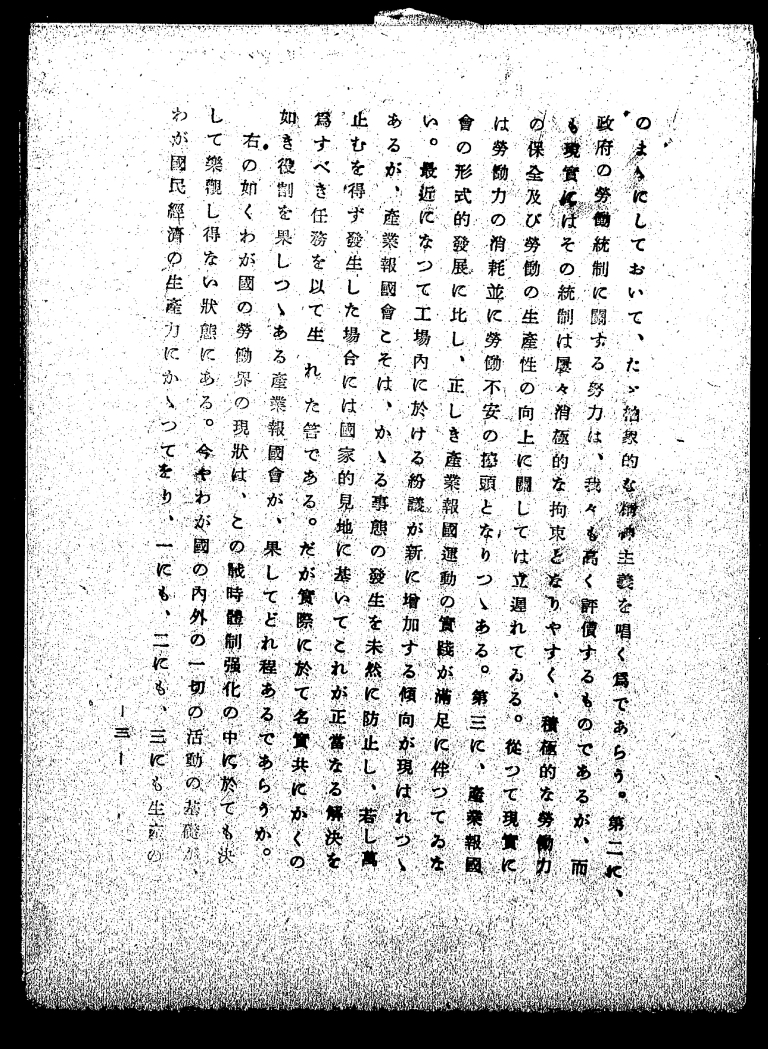 のまゝにしておいて、たゞ抽象的な精神主義を唱く爲であらう。第二に、
政府の勞働統制に關する努力は、我々も高く評價するものであるが、而
も現實にはその統制は屡々消極的な拘束となりやすく、積極的な勞働力
の保全及び勞働の生產性の向上に關しては立遲れてゐる。從つて現實に
は勞働力の消耗並に勞働不安の擡頭となりつゝある。第三に、產業報國
會の形式的發展に比し、正しき產業報國運動の實踐が滿足に伴つてゐな
い。最近になつて工場內に於ける紛議が新に增加する傾向が現はれつゝ
あるが、產業報國會こそは、かゝる事態の發生を未然に防止し、若し萬
止むを得ず發生した場合には國家的見地に基いてこれが正當なる解決を
爲すべき任務を以て生れた筈である。だが實際に於て名實共にかくの
如き役割を果しつゝある產業報國會が、果してどれ程あるであらうか。
右の如くわが國の勞働界の現狀は、この戰時體制强化の中に於ても決
して樂觀し得ない狀態にある。今やわが國の內外の一切の活動の基礎が、
わが國民經濟の生產力にかゝつてをり、一にも、二にも、三にも生產の
― 三 ―